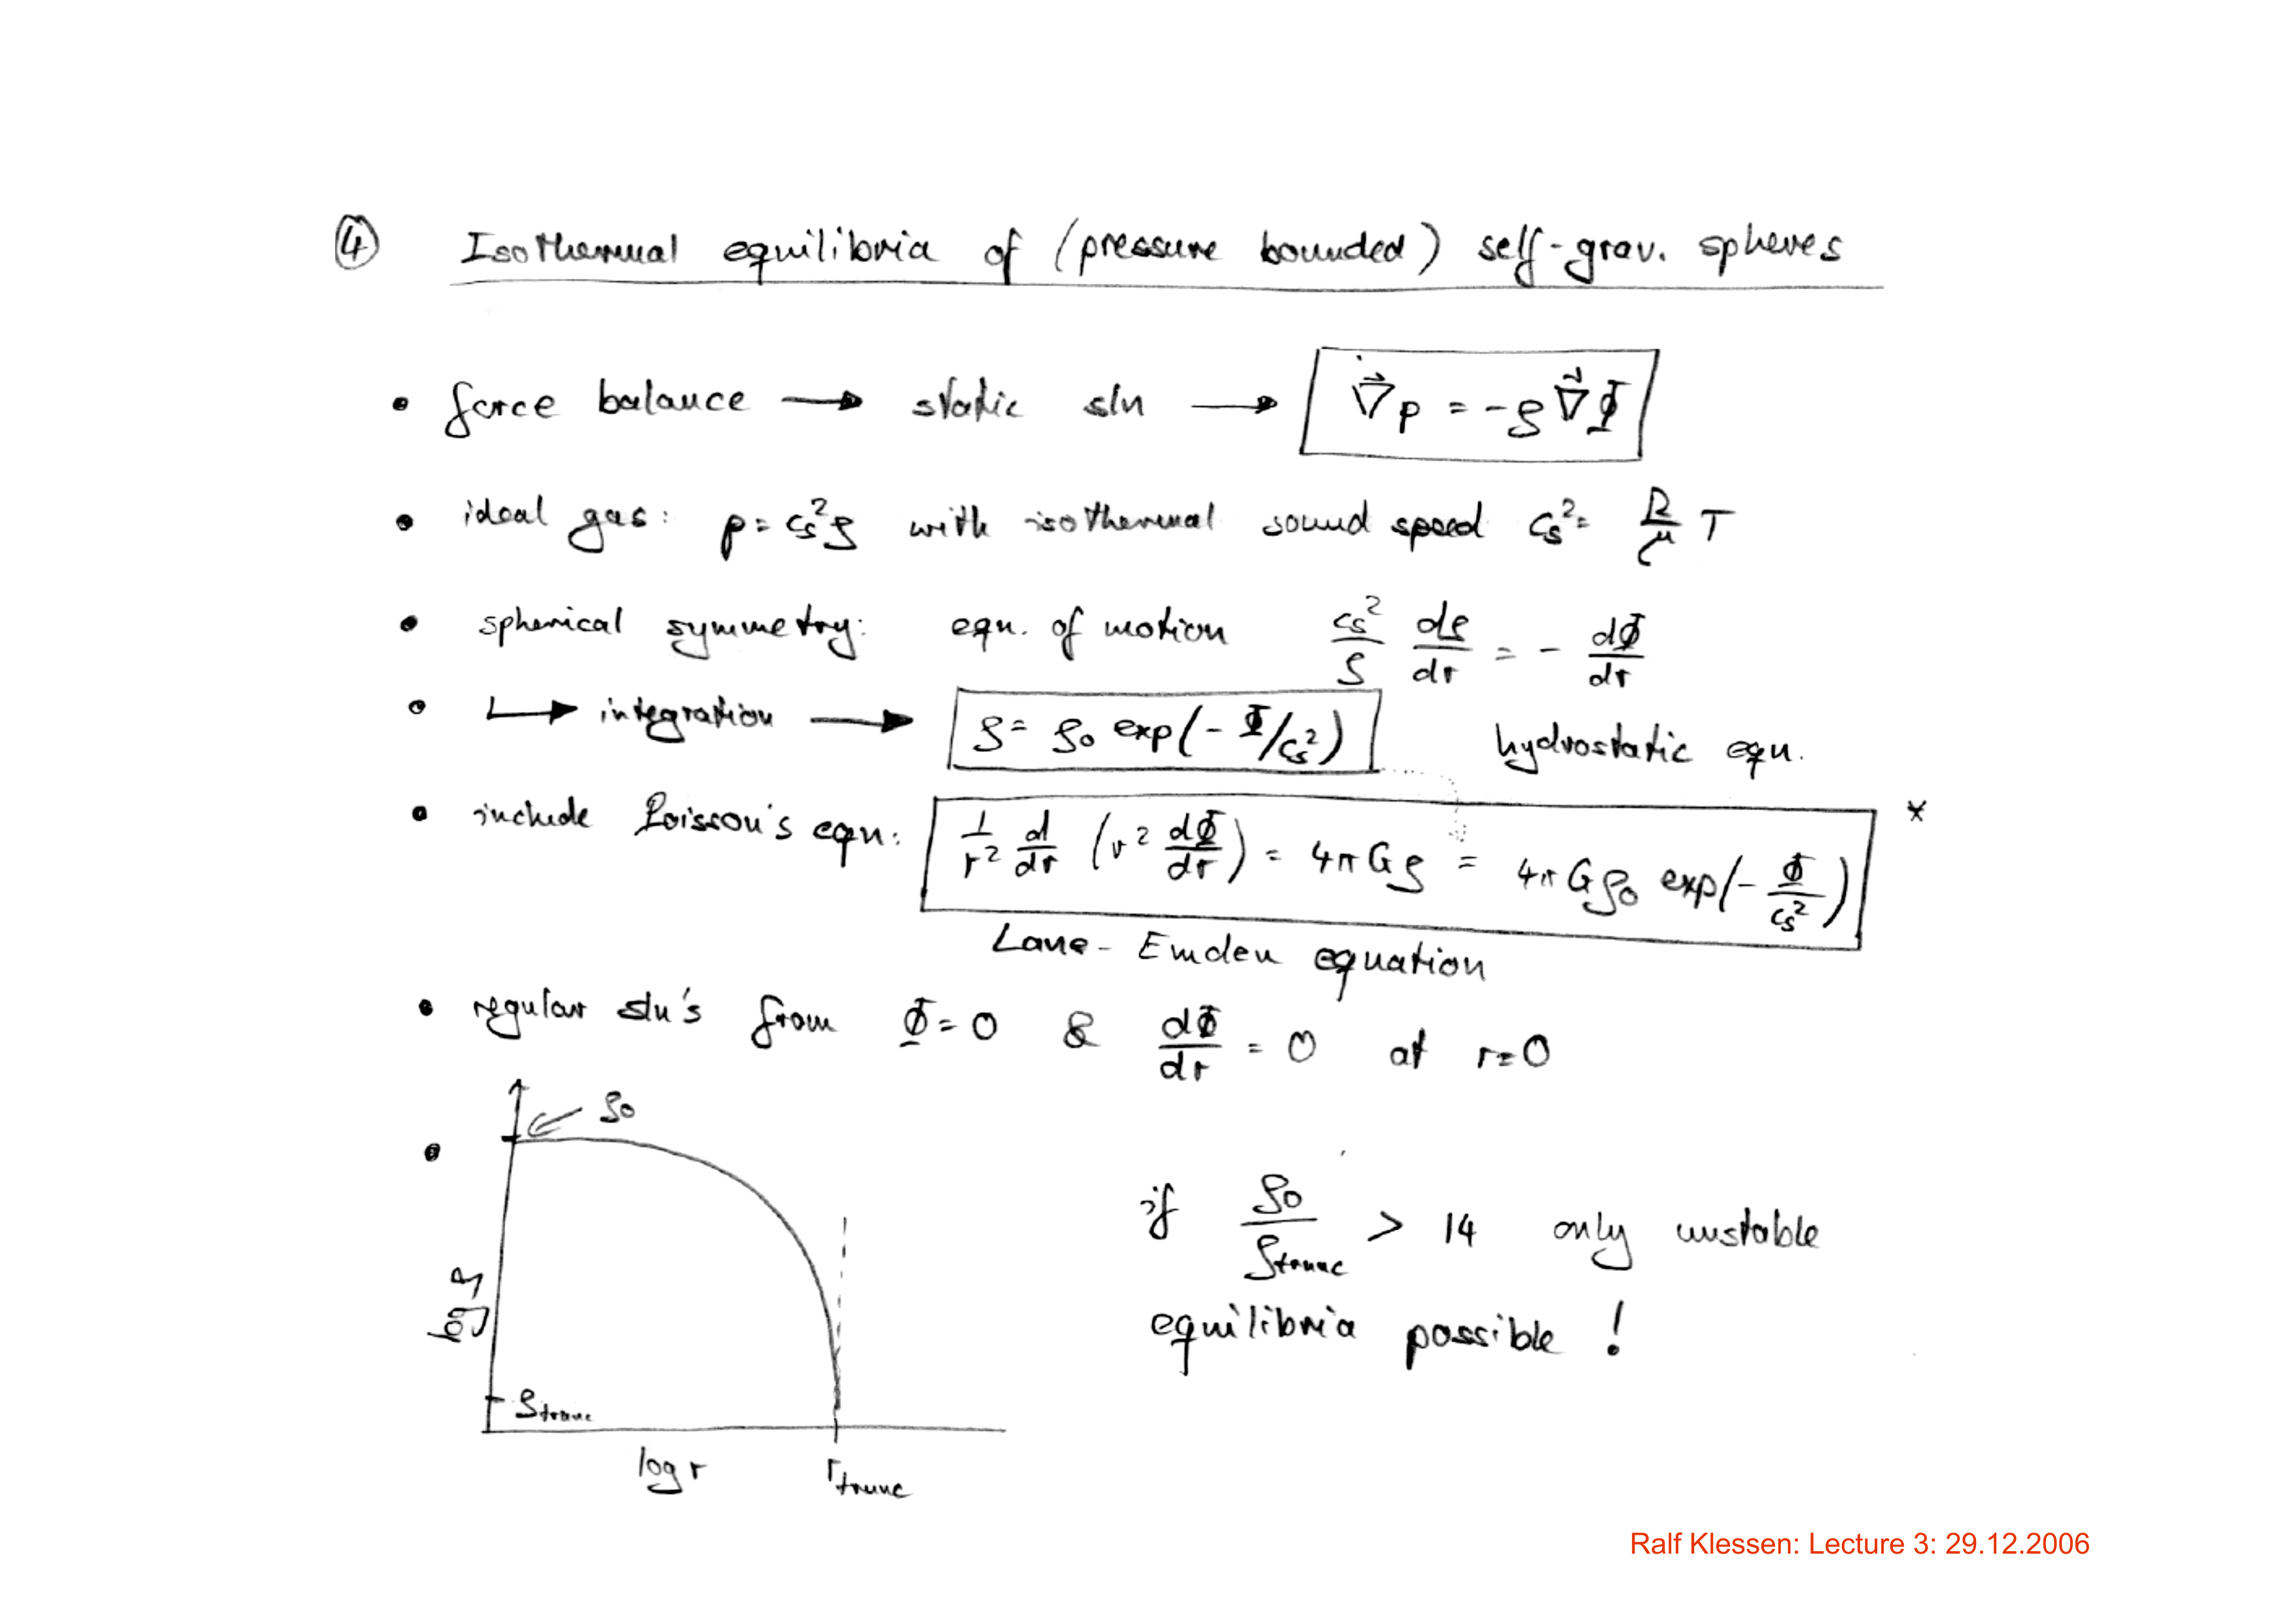 ④ Isothermal equilibria of (pressure bounded) self-grav. spheres
• force balance → static sln → ∇⃗p = -ρ∇⃗Φ
• ideal gas: p = cs²ρ with isothermal sound speed cs² = R/μ T
• spherical symmetry: equ. of motion cs²/ρ dρ/dr = - dΦ/dr
• ↳ integration → ρ = ρ0 exp(-Φ/cs²) hydrostatic equ.
• include Poisson's equ: 1/r² d/dr (r² dΦ/dr) = 4πGρ = 4πGρ0 exp(-Φ/cs²) *
Lane-Emden equation
• regular sln's from Φ=0 & dΦ/dr = 0 at r=0
• ρ0
if ρ0/ρtrunc > 14 only unstable
equilibria possible !
log ρ
ρtrunc
log r rtrunc
Ralf Klessen: Lecture 3: 29.12.2006